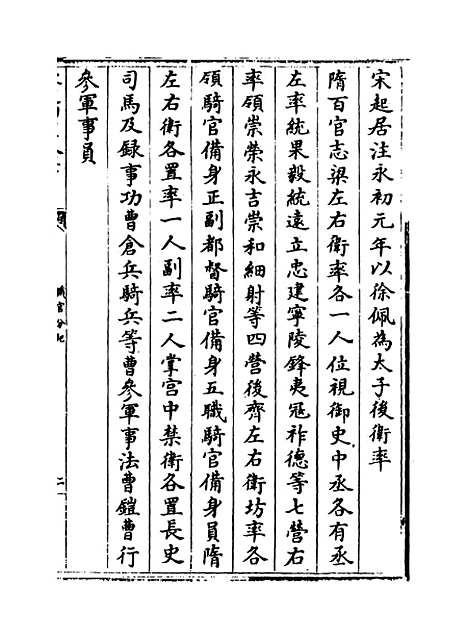 宋起居注永初元年以徐佩為太子後衛率
隋百官志梁左右衛率各一人位視御史中丞各有丞
左率統果毅統遠立忠建寧陵鋒夷冦祚德等七營右
率領崇榮永吉崇和細射等四營後齊左右衛坊率各
領騎官備身正副都督騎官備身五職騎官備身員隋
左右衛各置率一人副率二人掌宫中禁衛各置長史
司馬及録事功曹倉兵騎兵等曹參軍事法曹鎧曹行
參軍事員
職官分紀
二